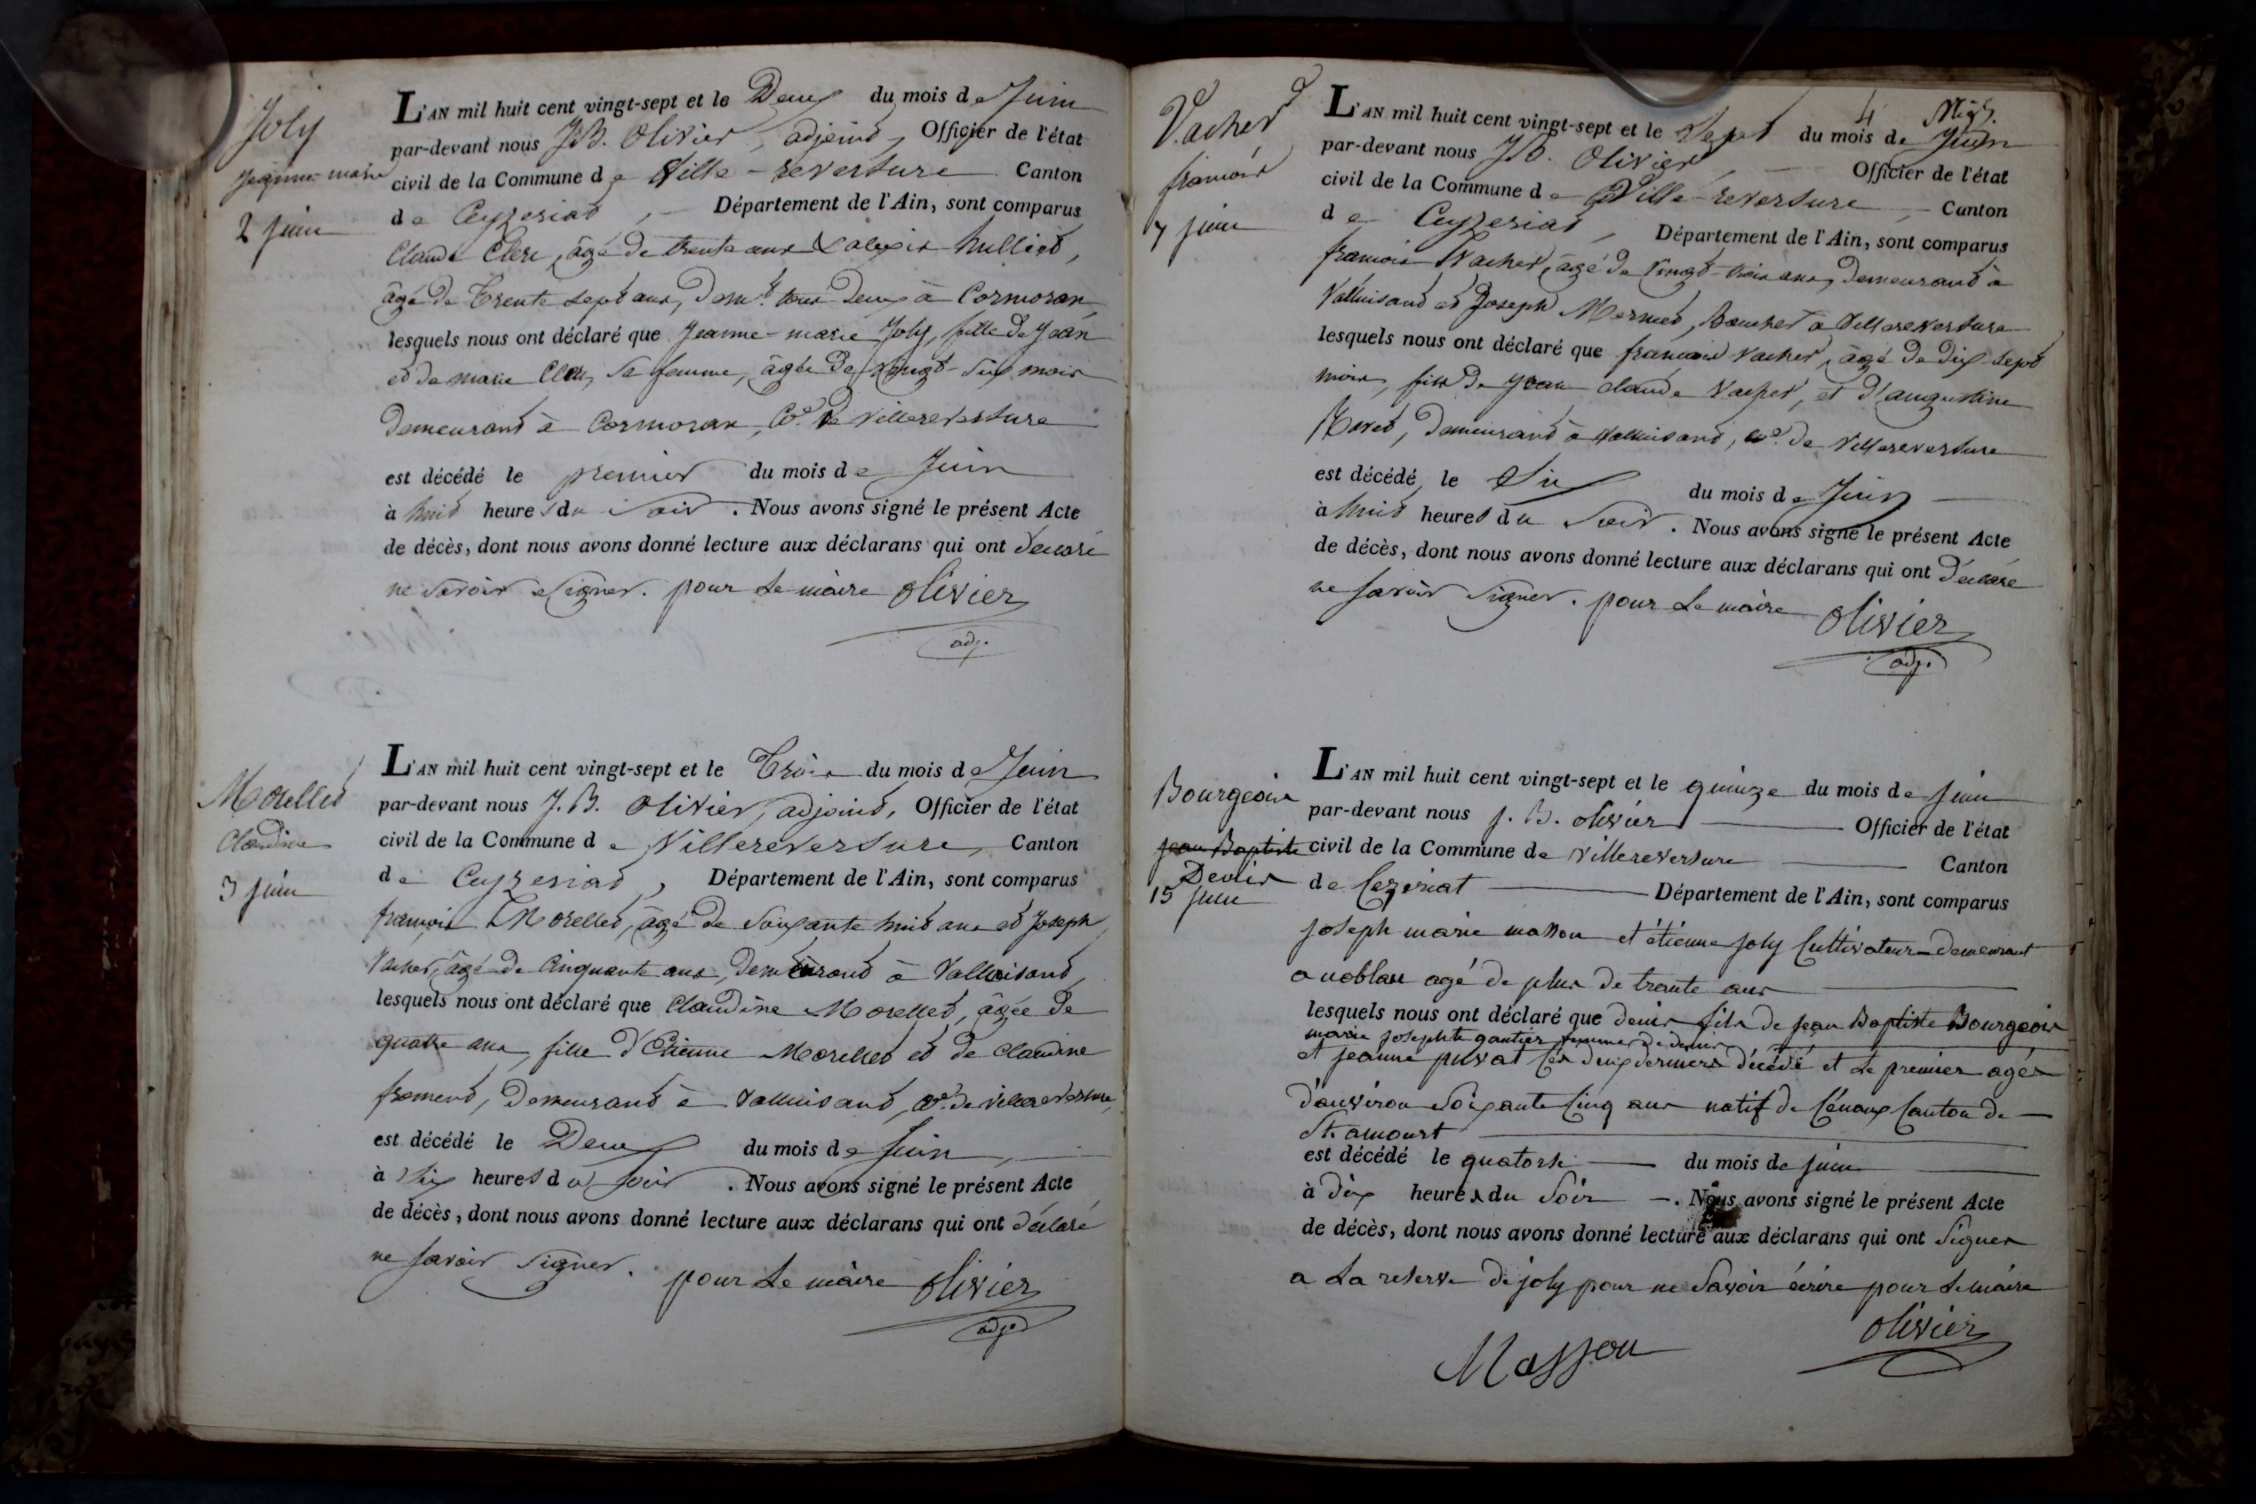 Joly
jeanne-marie
2 juin
L'AN mil huit cent vingt-sept et le Deux du mois de Juin
par-devant nous J.B. Olivier, adjoint, Officier de l'état
civil de la Commune de Ville-reversure Canton
de Ceyzeriat, Département de l'Ain, sont comparus
Claude Clere, âgé de trente ans & alexis hulliot,
âgé de Trente sept ans, demt. tous Deux à Cormoran,
lesquels nous ont déclaré que Jeanne-marie Joly, fille de Jean
et de marie Clere, sa femme, âgée de vingt-six mois
demeurant à Cormoran, Coe. de Villereversure
est décédé le premier du mois de Juin
à huit heures du soir. Nous avons signé le présent Acte
de décès, dont nous avons donné lecture aux déclarans qui ont déclaré
ne savoir signer. pour Le maire Olivier
adj.
Morellet
Claudine
3 juin
L'AN mil huit cent vingt-sept et le Trois du mois de Juin
par-devant nous J.B. Olivier, adjoint, Officier de l'état
civil de la Commune de Villereversure, Canton
de Ceyzeriat, Département de l'Ain, sont comparus
françois Morellet, âgé de soixante huit ans et Joseph
Vacher, âgé de Cinquante ans, demeurant à Valluisant,
lesquels nous ont déclaré que Claudine Morellet, âgée de
quatre ans, fille d'Etienne Morellet et de Claudine
froment, demeurant à Valluisant, Coe. de villereversure,
est décédé le Deux du mois de Juin,
à six heures du soir. Nous avons signé le présent Acte
de décès, dont nous avons donné lecture aux déclarans qui ont déclaré
ne savoir signer. pour Le maire Olivier
adj.
4
Vacher
françois
7 juin
L'AN mil huit cent vingt-sept et le Sept du mois de Juin
par-devant nous J.B. Olivier, Officier de l'état
civil de la Commune de Ville-reversure, Canton
de Ceyzeriat, Département de l'Ain, sont comparus
francois Vacher, âgé de Vingt-trois ans, demeurant à
Valluisant et Joseph Mermet, Boucher à Villereversure
lesquels nous ont déclaré que francois Vacher, âgé de dix-sept
mois, fils de Jean claude Vacher, et d'augustine
Moret, demeurant à Valluisant, coe. de Villereversure
est décédé le Six du mois de Juin
à huit heures du Soir. Nous avons signé le présent Acte
de décès, dont nous avons donné lecture aux déclarans qui ont déclaré
ne savoir signer. pour Le maire Olivier
adj.
Bourgeois
jean Baptiste
Denis
15 juin
L'AN mil huit cent vingt-sept et le quinze du mois de juin
par-devant nous J.B. olivier Officier de l'état
civil de la Commune de villereversure Canton
de Cezeriat Département de l'Ain, sont comparus
joseph marie masson et étienne joly Cultivateurs demeurant
a noblan agé de plus de trante ans
lesquels nous ont déclaré que denis fils de jean Baptiste Bourgeois
marie josephte gautier femme de denis
et jeanne puvat Ces deux derniers décédé et Le premier agés
d'anviron soixante Cinq ans natif de Cénaux Canton de
St. amourt
est décédé le quatorse du mois de juin
à dix heures du Soir. Nous avons signé le présent Acte
de décès, dont nous avons donné lecture aux déclarans qui ont Signer
a La reserve de joly pour ne savoir écrire pour Le maire
olivier
Masson